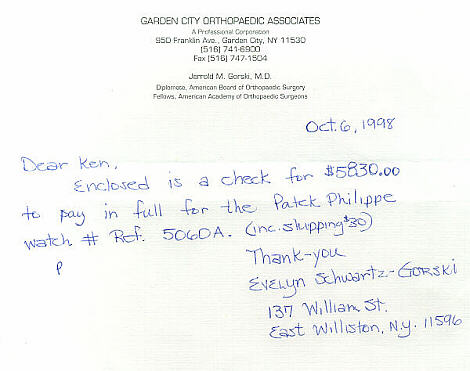 GARDEN CITY ORTHOPAEDIC ASSOCIATES
A Professional Corporation
950 Franklin Ave., Garden City, NY 11530
(516) 741-6900
Fax (516) 747-1504
Jerrold M. Gorski, M.D.
Diplomate, American Board of Orthopaedic Surgery
Fellows, American Academy of Orthopaedic Surgeons
Oct. 6, 1998
Dear Ken,
Enclosed is a check for $5830.00
to pay in full for the Patek Philippe
watch # Ref. 5060A. (inc. shipping $30)
P
Thank-you
Evelyn Schwartz-Gorski
137 William St.
East Williston, N.Y. 11596